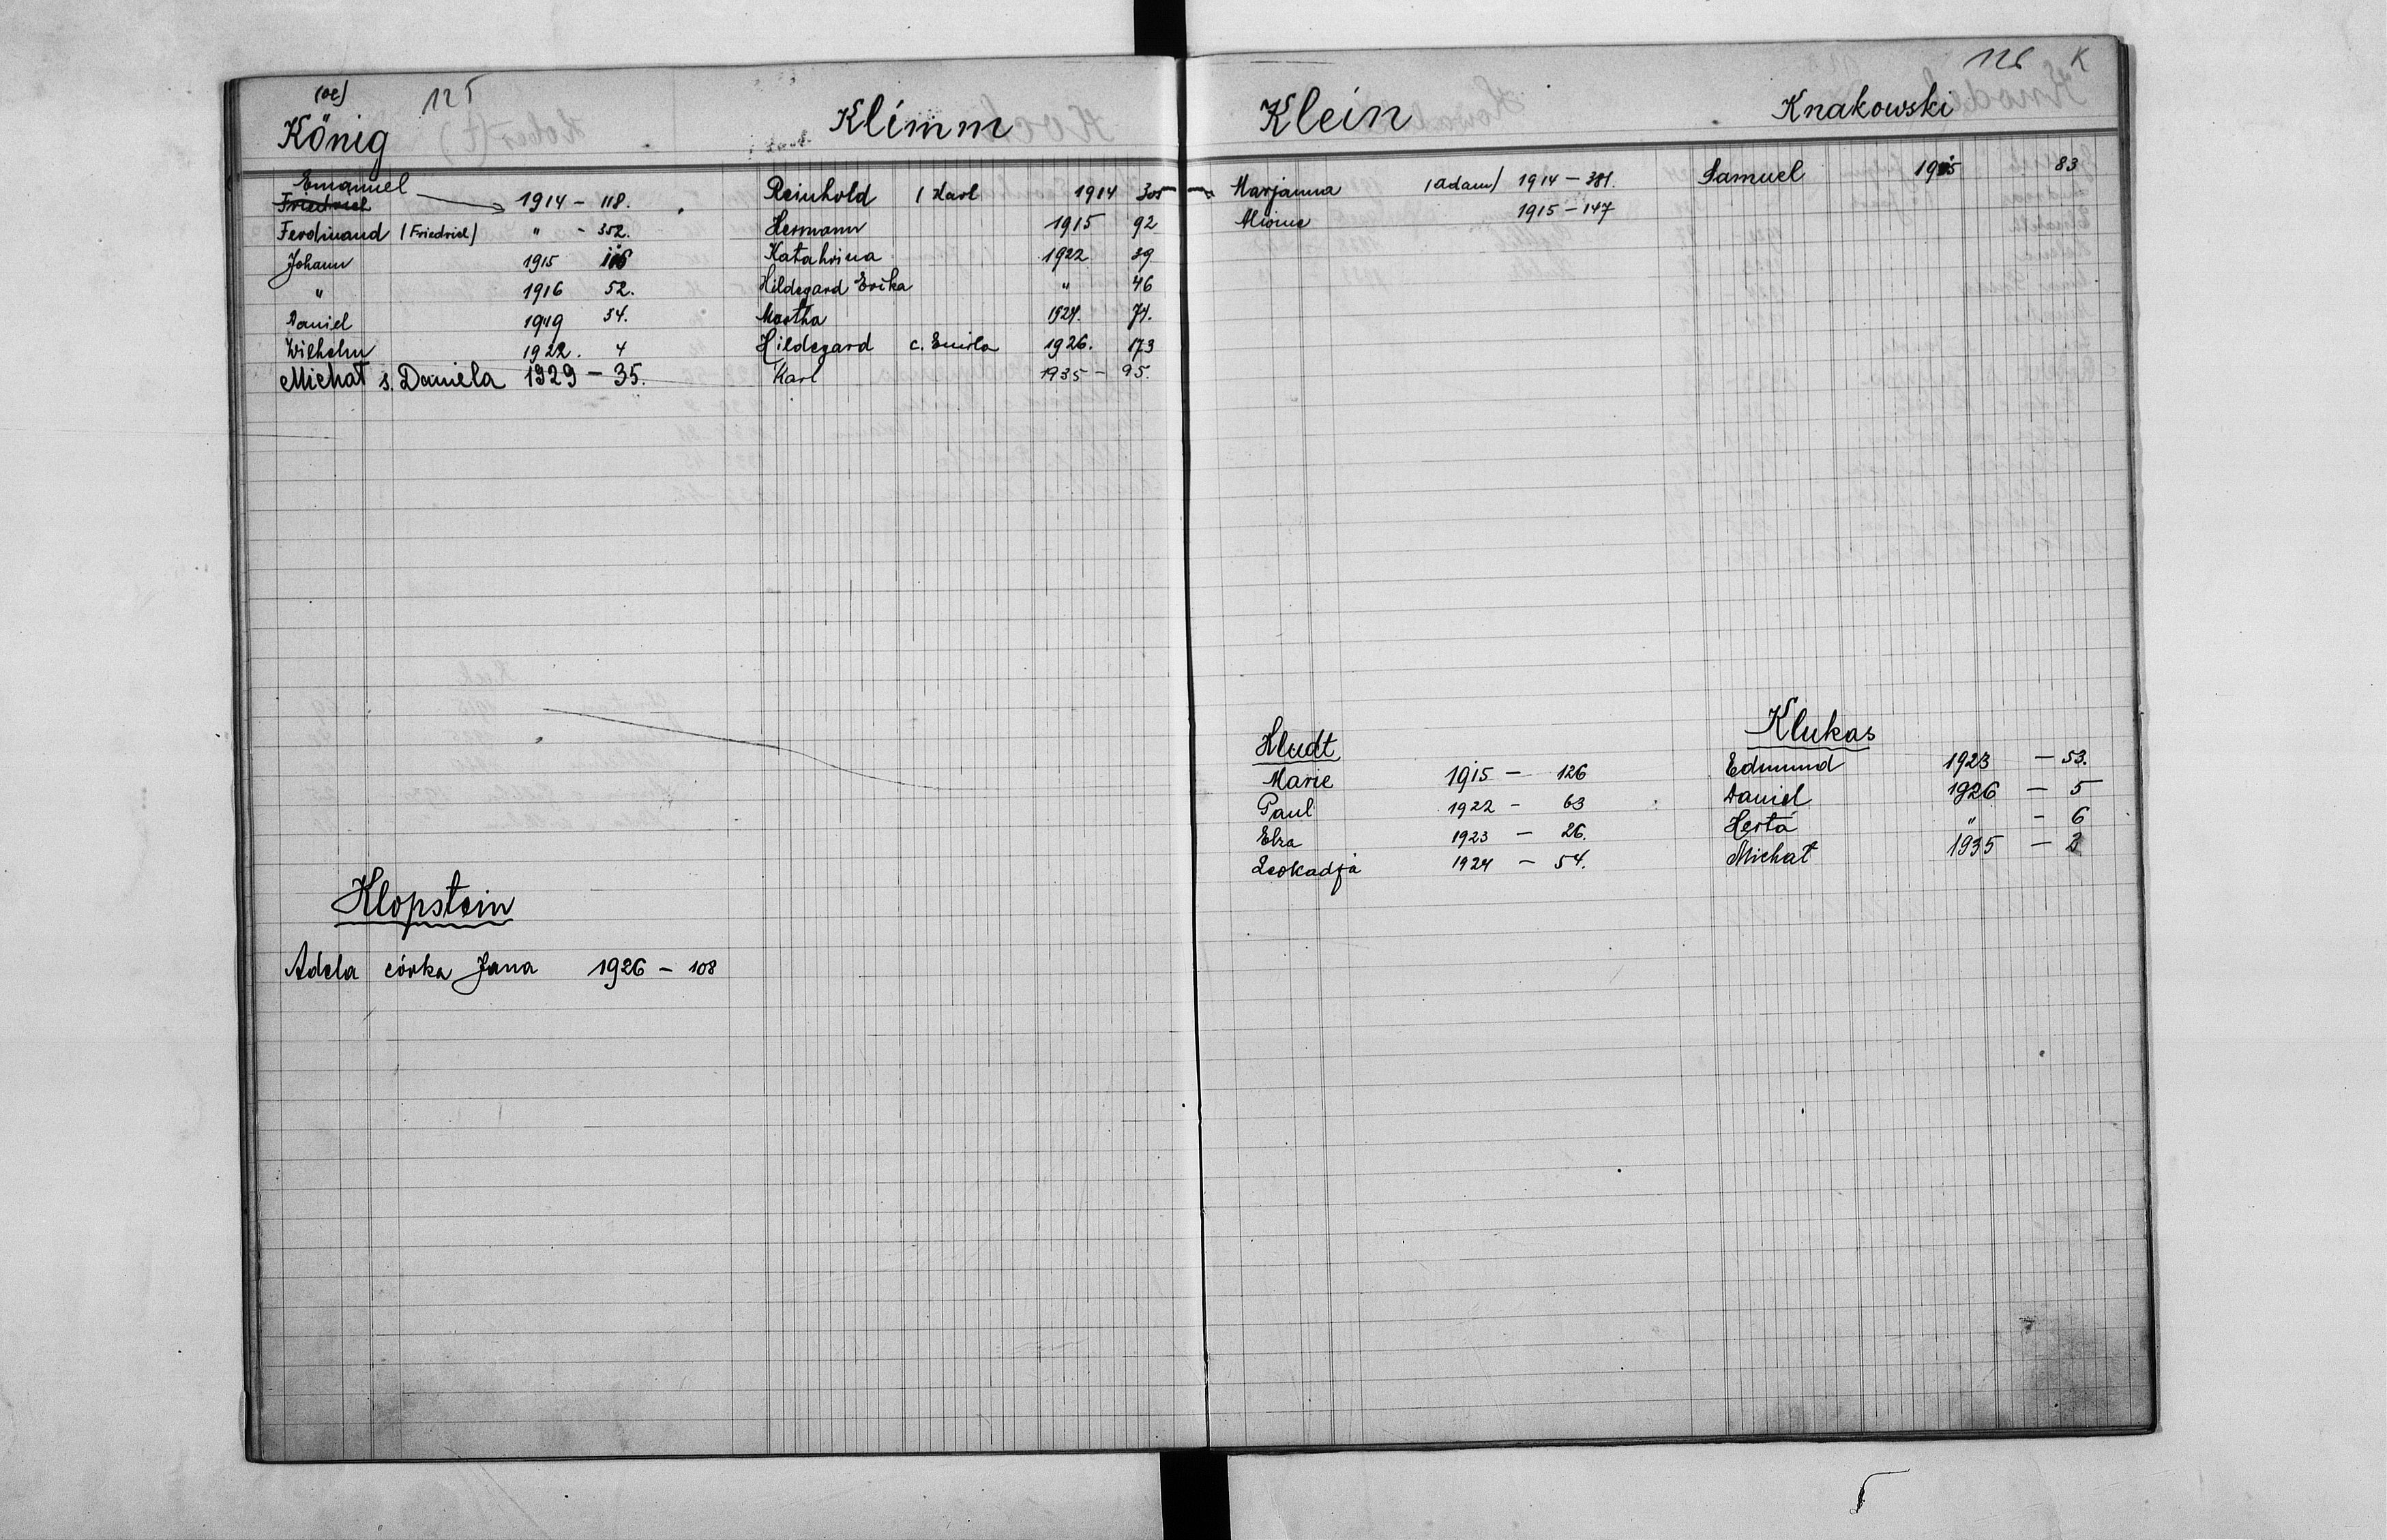 (oe) 125
König
Emanuel 1914 - 118.
Friedrich
Ferdinand (Friedrich) " - 352.
Johann 1915
" 1916 52.
Daniel 1919 54.
Wilhelm 1922. 4
Michał s. Daniela 1929 - 35.
Klopstein
Adela córka Jana 1926 - 108
Klimm
Reinhold (Karl 1914 305
Hermann 1915 92
Katahrina 1922 39
Hildegard Erika " 46
Martha 1924. 74.
Hildegard c. Emila 1926. 173
Karl 1935 - 95.
126 K
Klein
Marjanna (Adam) 1914 - 381.
1915 - 147
Kludt
Marie 1915 - 126
Paul 1922 - 63
Elza 1923 - 26.
Leokadja 1924 - 54.
Knakowski
Samuel 1915 83
Klukas
Edmund 1923 - 53.
Daniel 1926 - 5
Herta " - 6
Michał 1935 - 2